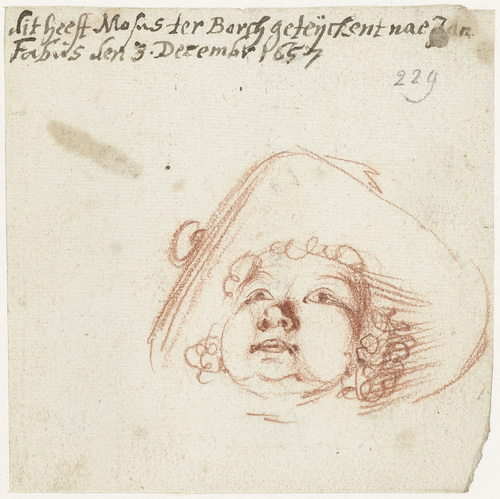 dit heeft Moses ter Borch geteÿckent nae Jan
Fabus den 3 Decembr 1657
229